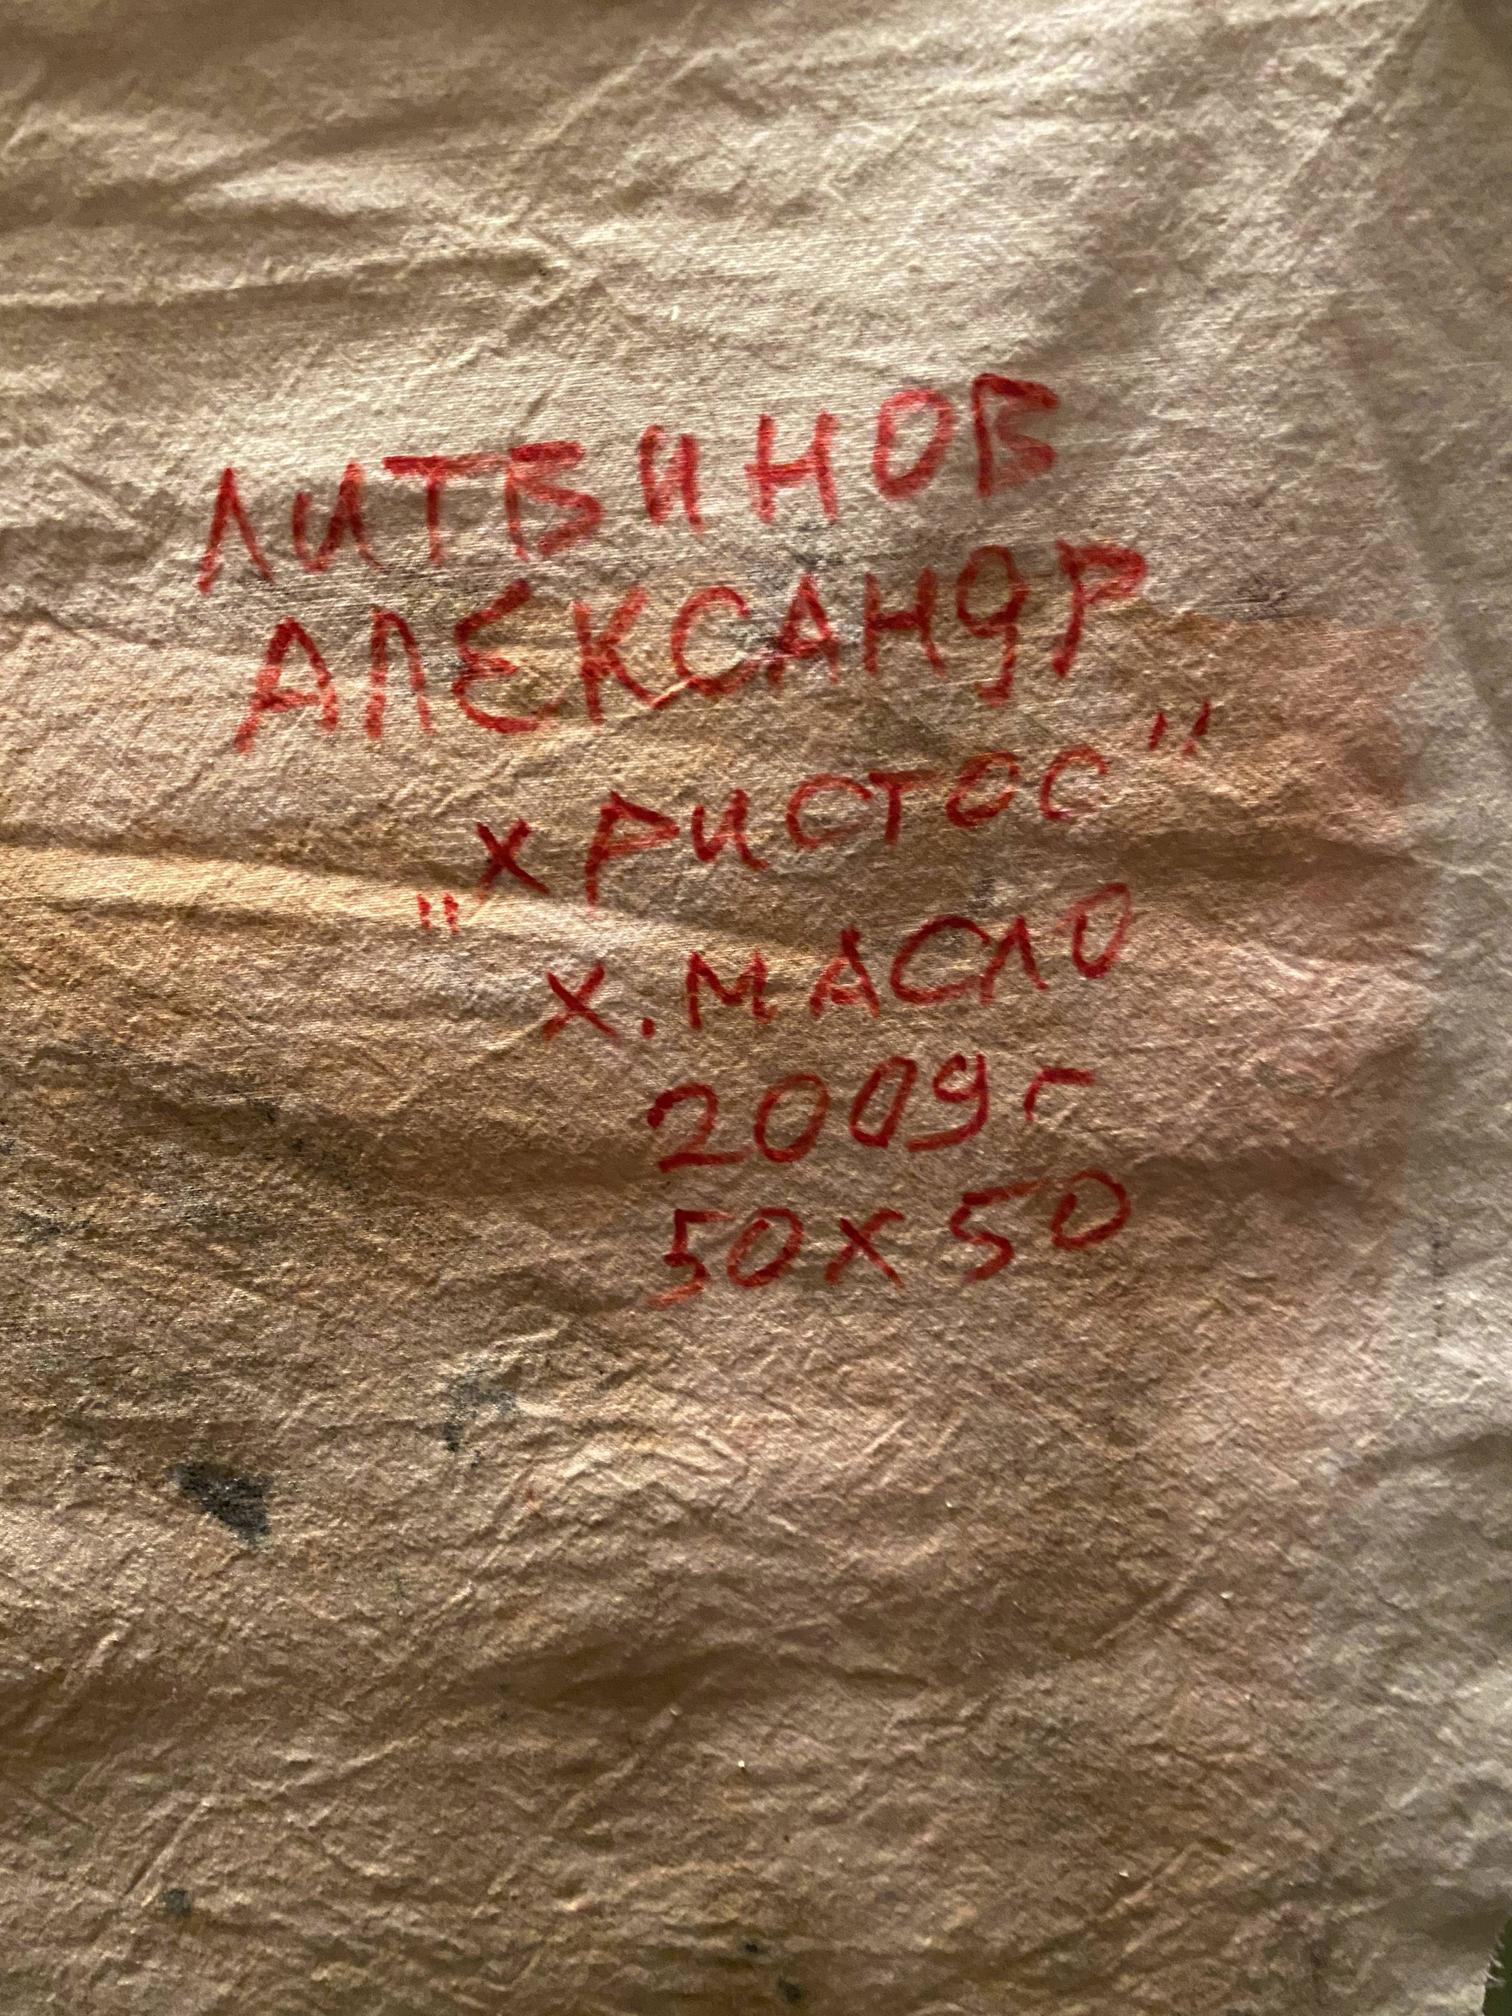 ЛИТВИНОВ
АЛЕКСАНДР
„ХРИСТОС"
Х. МАСЛО
2009 г
50 х 50